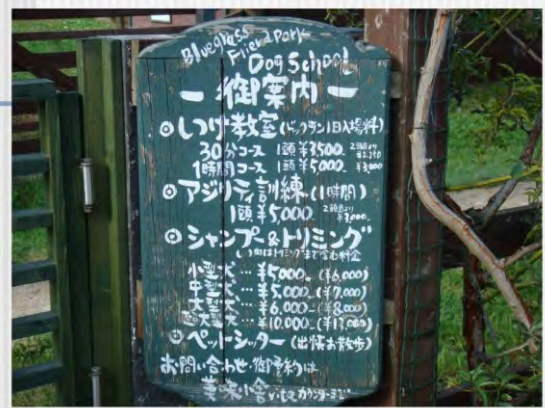 Bluegrass
Friend Park
Dog School
ー御案内ー
◎しつけ教室(ドックラン1日入場料)
30分コース 1頭¥3500_
1時間コース 1頭¥5,000_ ¥3,000
◎アジリティ訓練(1時間)
1頭¥5,000_ 2頭目より ¥3,000_
◎シャンプー&トリミング
小型犬…¥5,000_(¥6,000)
中型犬…¥5,000_(¥7,000)
大型犬…¥6,000_(¥8,000)
超大型犬…¥10,000_(¥13,000)
◎ペットシッター(出張お散歩)
お問い合わせ・御予約は
美味小舎